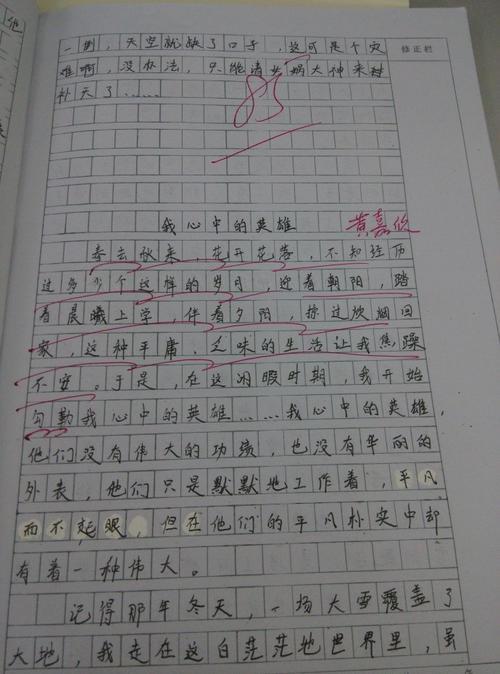 他
修正栏
一倒，天空就缺了口子，这可是个灾
难啊，没办法，只能请女娲大神来对
补天了……
85
我心中的英雄
黄嘉欣
春去秋来，花开花落，不知经历
过多少个这样的岁月，迎着朝阳，踏
着晨曦上学，伴着夕阳，掠过炊烟回
家，这种平庸、乏味的生活让我焦躁
不安。于是，在这闲暇时期，我开始
勾勒我心中的英雄……我心中的英雄，
他们没有伟大的功绩，也没有华丽的
外表，他们只是默默地工作着，平凡
而不起眼，但在他们的平凡朴实中却
有着一种伟大。
记得那年冬天，一场大雪覆盖了
大地，我走在这白茫茫地世界里，虽